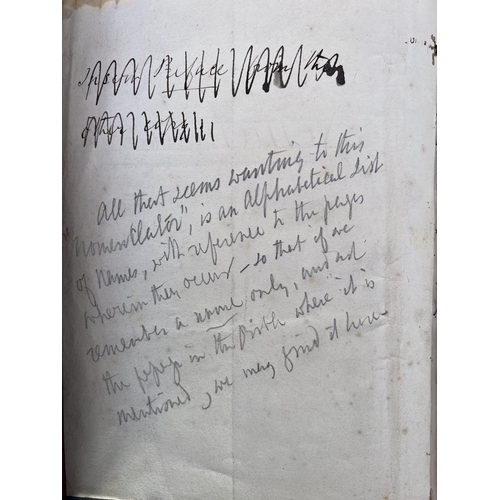 All that seems wanting to this
"Nomenclator", is an Alphabetical List
of Names, with reference to the pages
wherein they occur – so that if we
remember a name only, and not
the page in the Bible where it is
mentioned, we may find it here